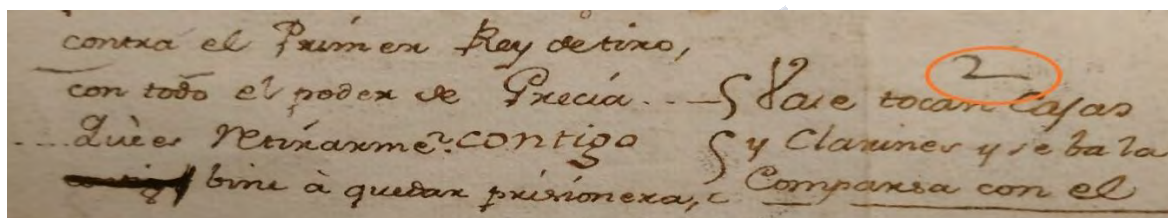 contra el Primer Rey de tiro,
2
con todo el poder de Grecia....
Vase tocan Casas
....Què es retirarme? contigo
y Clarines y se ba la
bine à quedar prisionera,
Comparsa con el